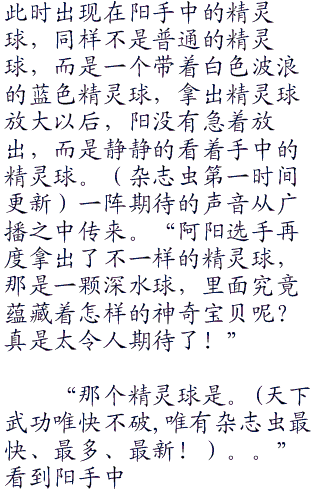 此时出现在阳手中的精灵
球，同样不是普通的精灵
球，而是一个带着白色波浪
的蓝色精灵球，拿出精灵球
放大以后，阳没有急着放
出，而是静静的看着手中的
精灵球。（杂志虫第一时间
更新）一阵期待的声音从广
播之中传来。“阿阳选手再
度拿出了不一样的精灵球，
那是一颗深水球，里面究竟
蕴藏着怎样的神奇宝贝呢？
真是太令人期待了！”
“那个精灵球是。(天下
武功唯快不破,唯有杂志虫最
快、最多、最新！）。。”
看到阳手中